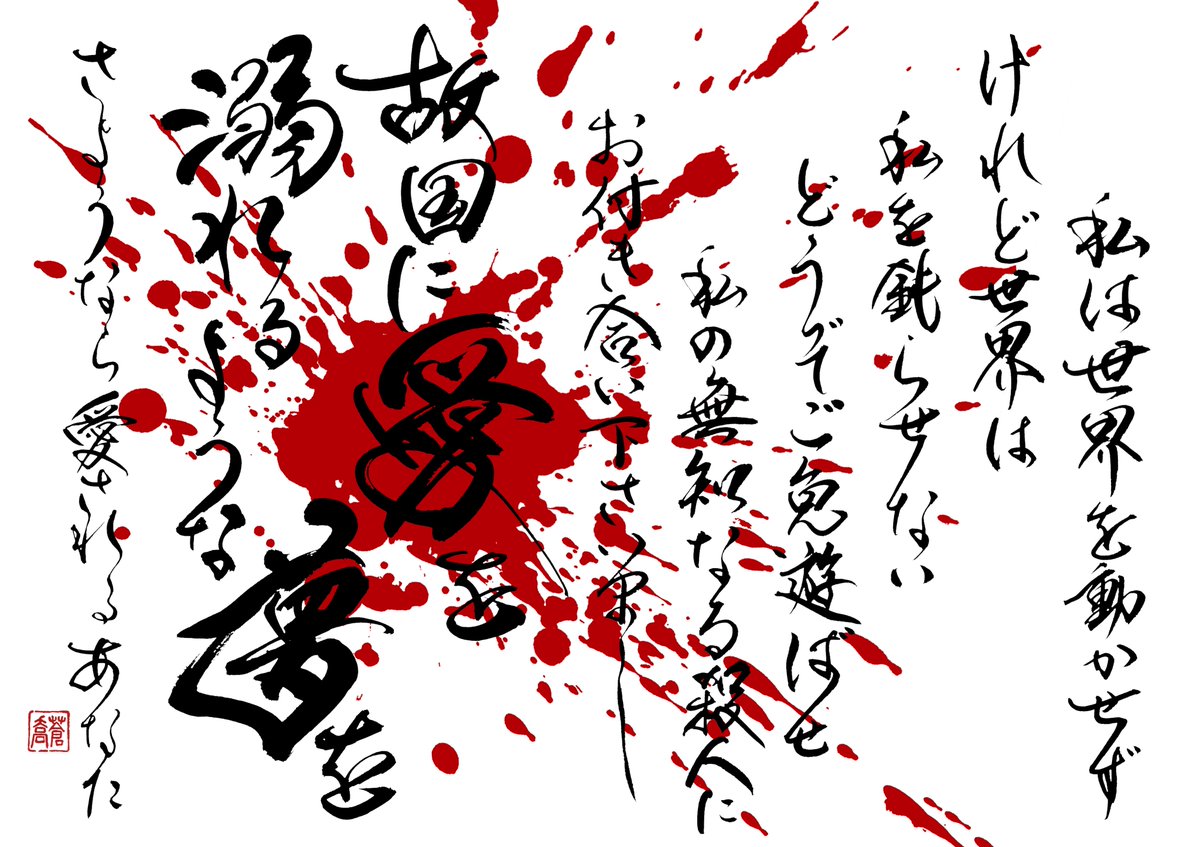 私は世界を動かせず
けれど世界は
私を鈍らせない
どうぞご免遊ばせ
私の無知なる殺人に
お付き合い下さいまし
故国に愛を
溺れるような夢を
さようなら愛されるあなた